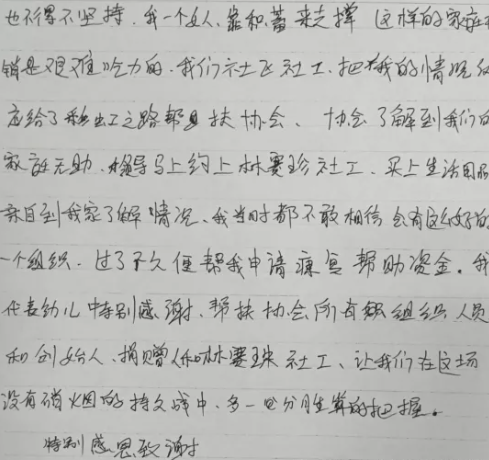 也不得不坚持,我一个女人,靠积蓄来支撑 这样的家庭
销是艰难吃力的.我们社区社工.把我的情况
应给了彩虹之路帮扶协会、协会了解到我们的
家庭无助.领导马上约上林赛珍社工、买上生活用品
亲自到我家了解情况、我当时都不敢相信会有这么好的
一个组织.过了不久便帮我申请康复帮助资金.我
代表幼儿特别感谢、帮扶协会所有组织人员
和创始人、捐赠人和林赛珠社工、让我们在这场
没有硝烟的持久战中、多一些分胜算的把握。
特别感恩致谢